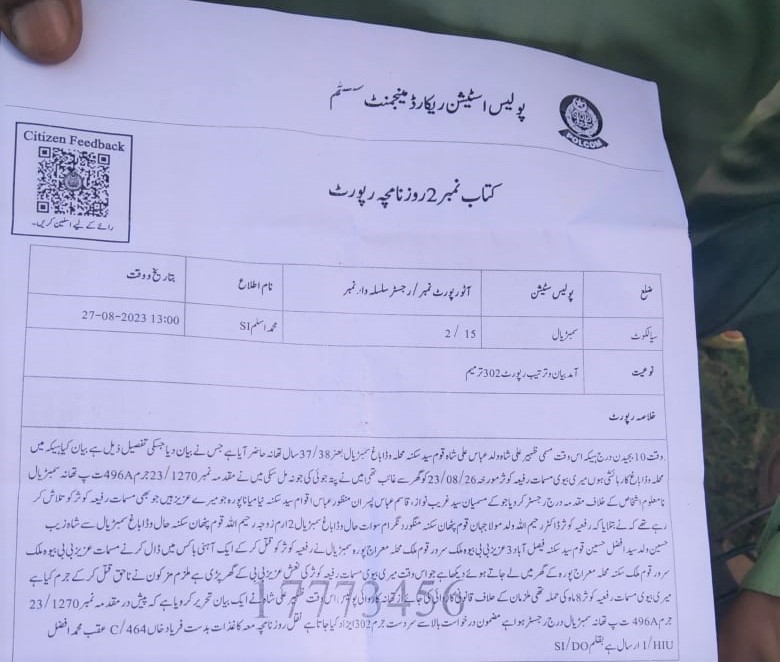 پولیس اسٹیشن ریکارڈ مینجمنٹ سسٹم
POLCOM
Citizen Feedback
رائے کے لیے اسکین کریں۔
کتاب نمبر 2 روزنامچہ رپورٹ
ضلع پولیس سٹیشن آٹو رپورٹ نمبر / رجسٹر سلسلہ وار نمبر نام اطلاع بتاریخ و وقت
سیالکوٹ سمبڑیال 2 / 15 محمد اسلم SI 27-08-2023 13:00
نوعیت آمد بیان و ترتیب رپورٹ 302 ترمیم
خلاصہ رپورٹ
وقت 10 بجے دن درج ہیکہ اس وقت مسمی ظہیر علی شاہ ولد عباس علی شاہ قوم سید سکنہ محلہ وڈا باغ سمبڑیال بعمر 37/38 سال تھانہ حاضر آیا ہے جس نے بیان دیا جسکی تفصیل ذیل ہے بیان کیا ہیکہ میں
محلہ وڈا باغ کا رہائشی ہوں میری بیوی مسمات رفیعہ کوثر مورخہ 23/08/26 کو گھر سے غائب تھی میں نے پتہ جوئی کی جو نہ مل سکی میں نے مقدمہ نمبر 23/1270 جرم 496A ت پ تھانہ سمبڑیال
نامعلوم اشخاص کے خلاف مقدمہ درج رجسٹر کروایا جو کے مسمیان سید غریب نواز، قاسم عباس پسران منظور عباس اقوام سید سکنہ نیا میانا پورہ جو میرے عزیز ہیں جو بھی مسمات رفیعہ کوثر کو تلاش کر
رہے تھے کہ نے بتلایا کہ رفیعہ کوثر ڈاکٹر رحیم اللہ ولد مولا جہان قوم پٹھان سکنہ منگورہ سوات حال وڈا باغ سمبڑیال 2 ارم زوجہ رحیم اللہ قوم پٹھان سکنہ حال وڈا باغ سمبڑیال سے شاہ زیب
حسین ولد سید افضل حسین قوم سید سکنہ فیصل آباد 3 عزیز بی بی بیوہ ملک سرور قوم ملک محلہ معراج پورہ سمبڑیال نے رفیعہ کوثر کو قتل کر کے ایک آہنی باکس میں ڈال کر نے مسمات عزیز بی بی بیوہ ملک
سرور قوم ملک سکنہ محلہ معراج پورہ کے گھر میں لے جاتے ہوئے دیکھا ہے جو اس وقت میری بیوی مسمات رفیعہ کوثر کی نعش عزیز بی بی کے گھر پڑی ہے ملزم مذکون نے ناحق قتل کر کے جرم کیا ہے
میری بیوی مسمات رفیعہ کوثر 8 ماہ کی حملہ تھی ملزمان کے خلاف قانونی کاروائی کی جائے از تھانہ کاروائی پولیس، اس وقت ظہیر علی شاہ نے ایک بیان تحریر کروایا ہے کہ پیش در مقدمہ نمبر 23/1270
جرم 496A ت پ تھانہ سمبڑیال درج رجسٹر ہوا ہے مضمون درخواست بالا سے سردست جرم 302 ایزاد کیا جاتا ہے نقل روزنامچہ معہ کاغذات بدست فریاد خاں 464/C عقب محمد افضل
1/HIU ارسال ہے بقلم SI/DO
17773456